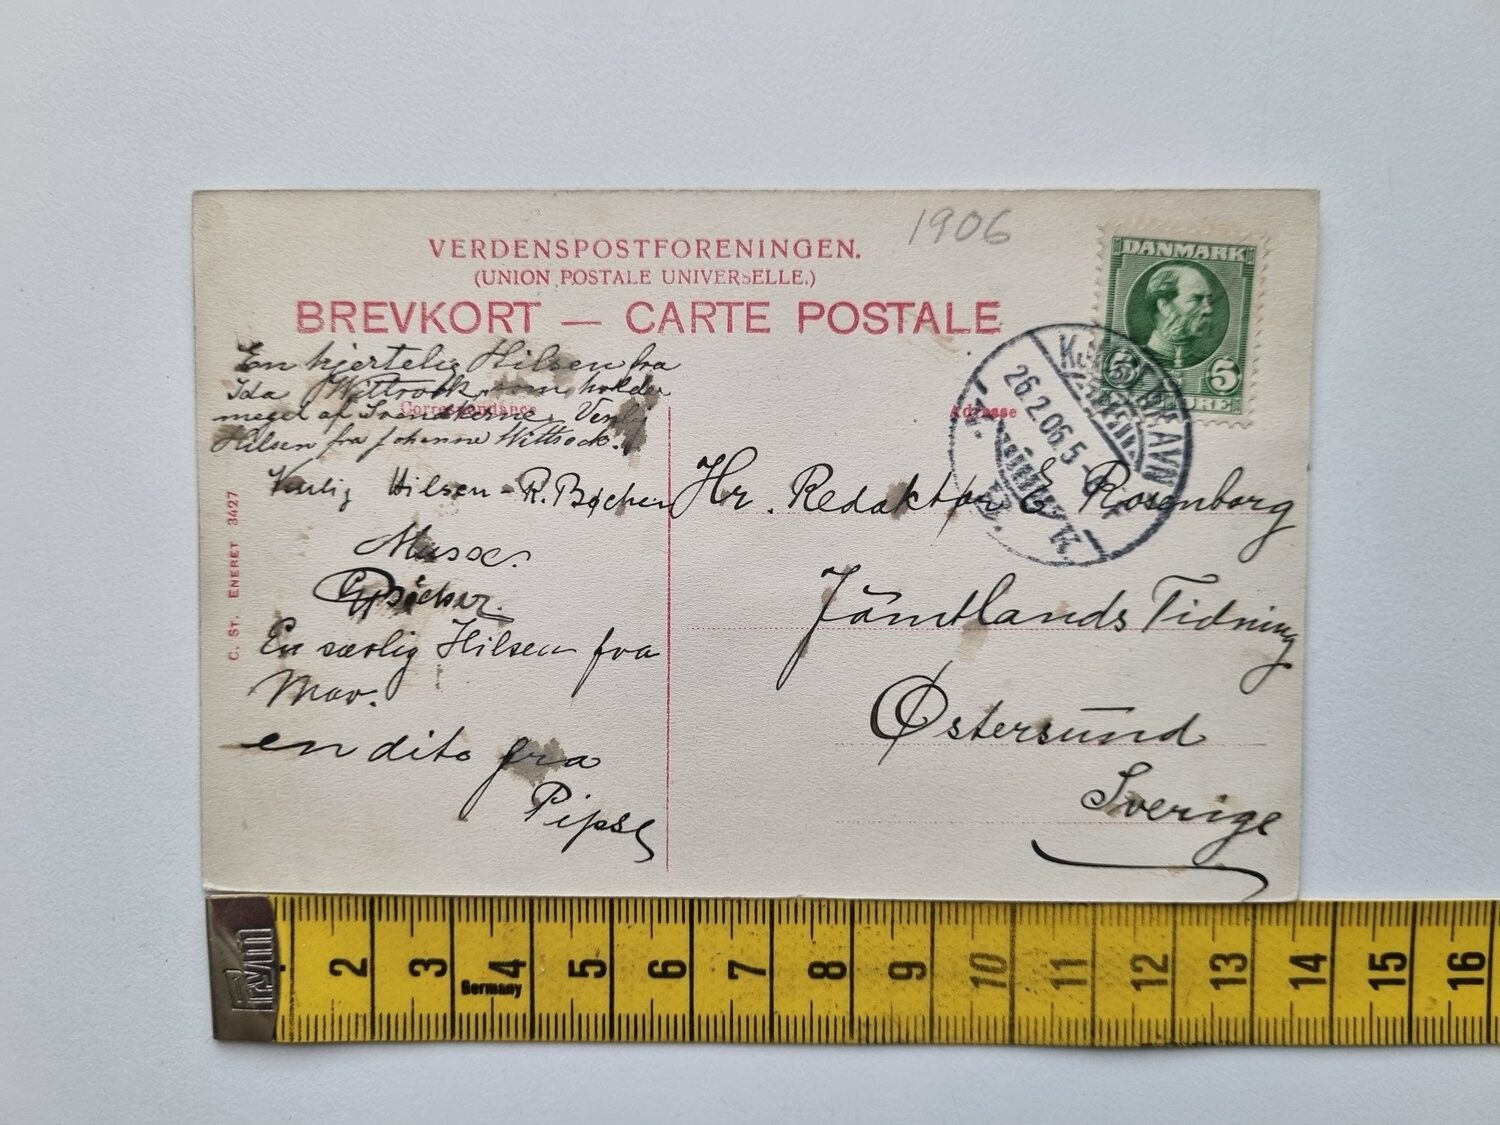 1906
VERDENSPOSTFORENINGEN.
(UNION POSTALE UNIVERSELLE.)
BREVKORT — CARTE POSTALE
DANMARK
5 5
ØRE
KJØBENHAVN
26.2.06.5-
K.
Correspondance
Adresse
En hjertelig Hilsen fra
Ida Wittrock, som holder
meget af Svenskerne. Venlig
Hilsen fra Johanne Wittrock.
Venlig Hilsen - R. Bøcher
Musse.
Bøcher.
En særlig Hilsen fra
Mor.
en dito fra
Pipse
Hr. Redaktør E Rosenborg
Jämtlands Tidning
Østersund
Sverige
C. ST. ENERET 3427
2 3 4 5 6 7 8 9 10 11 12 13 14 15 16
Germany